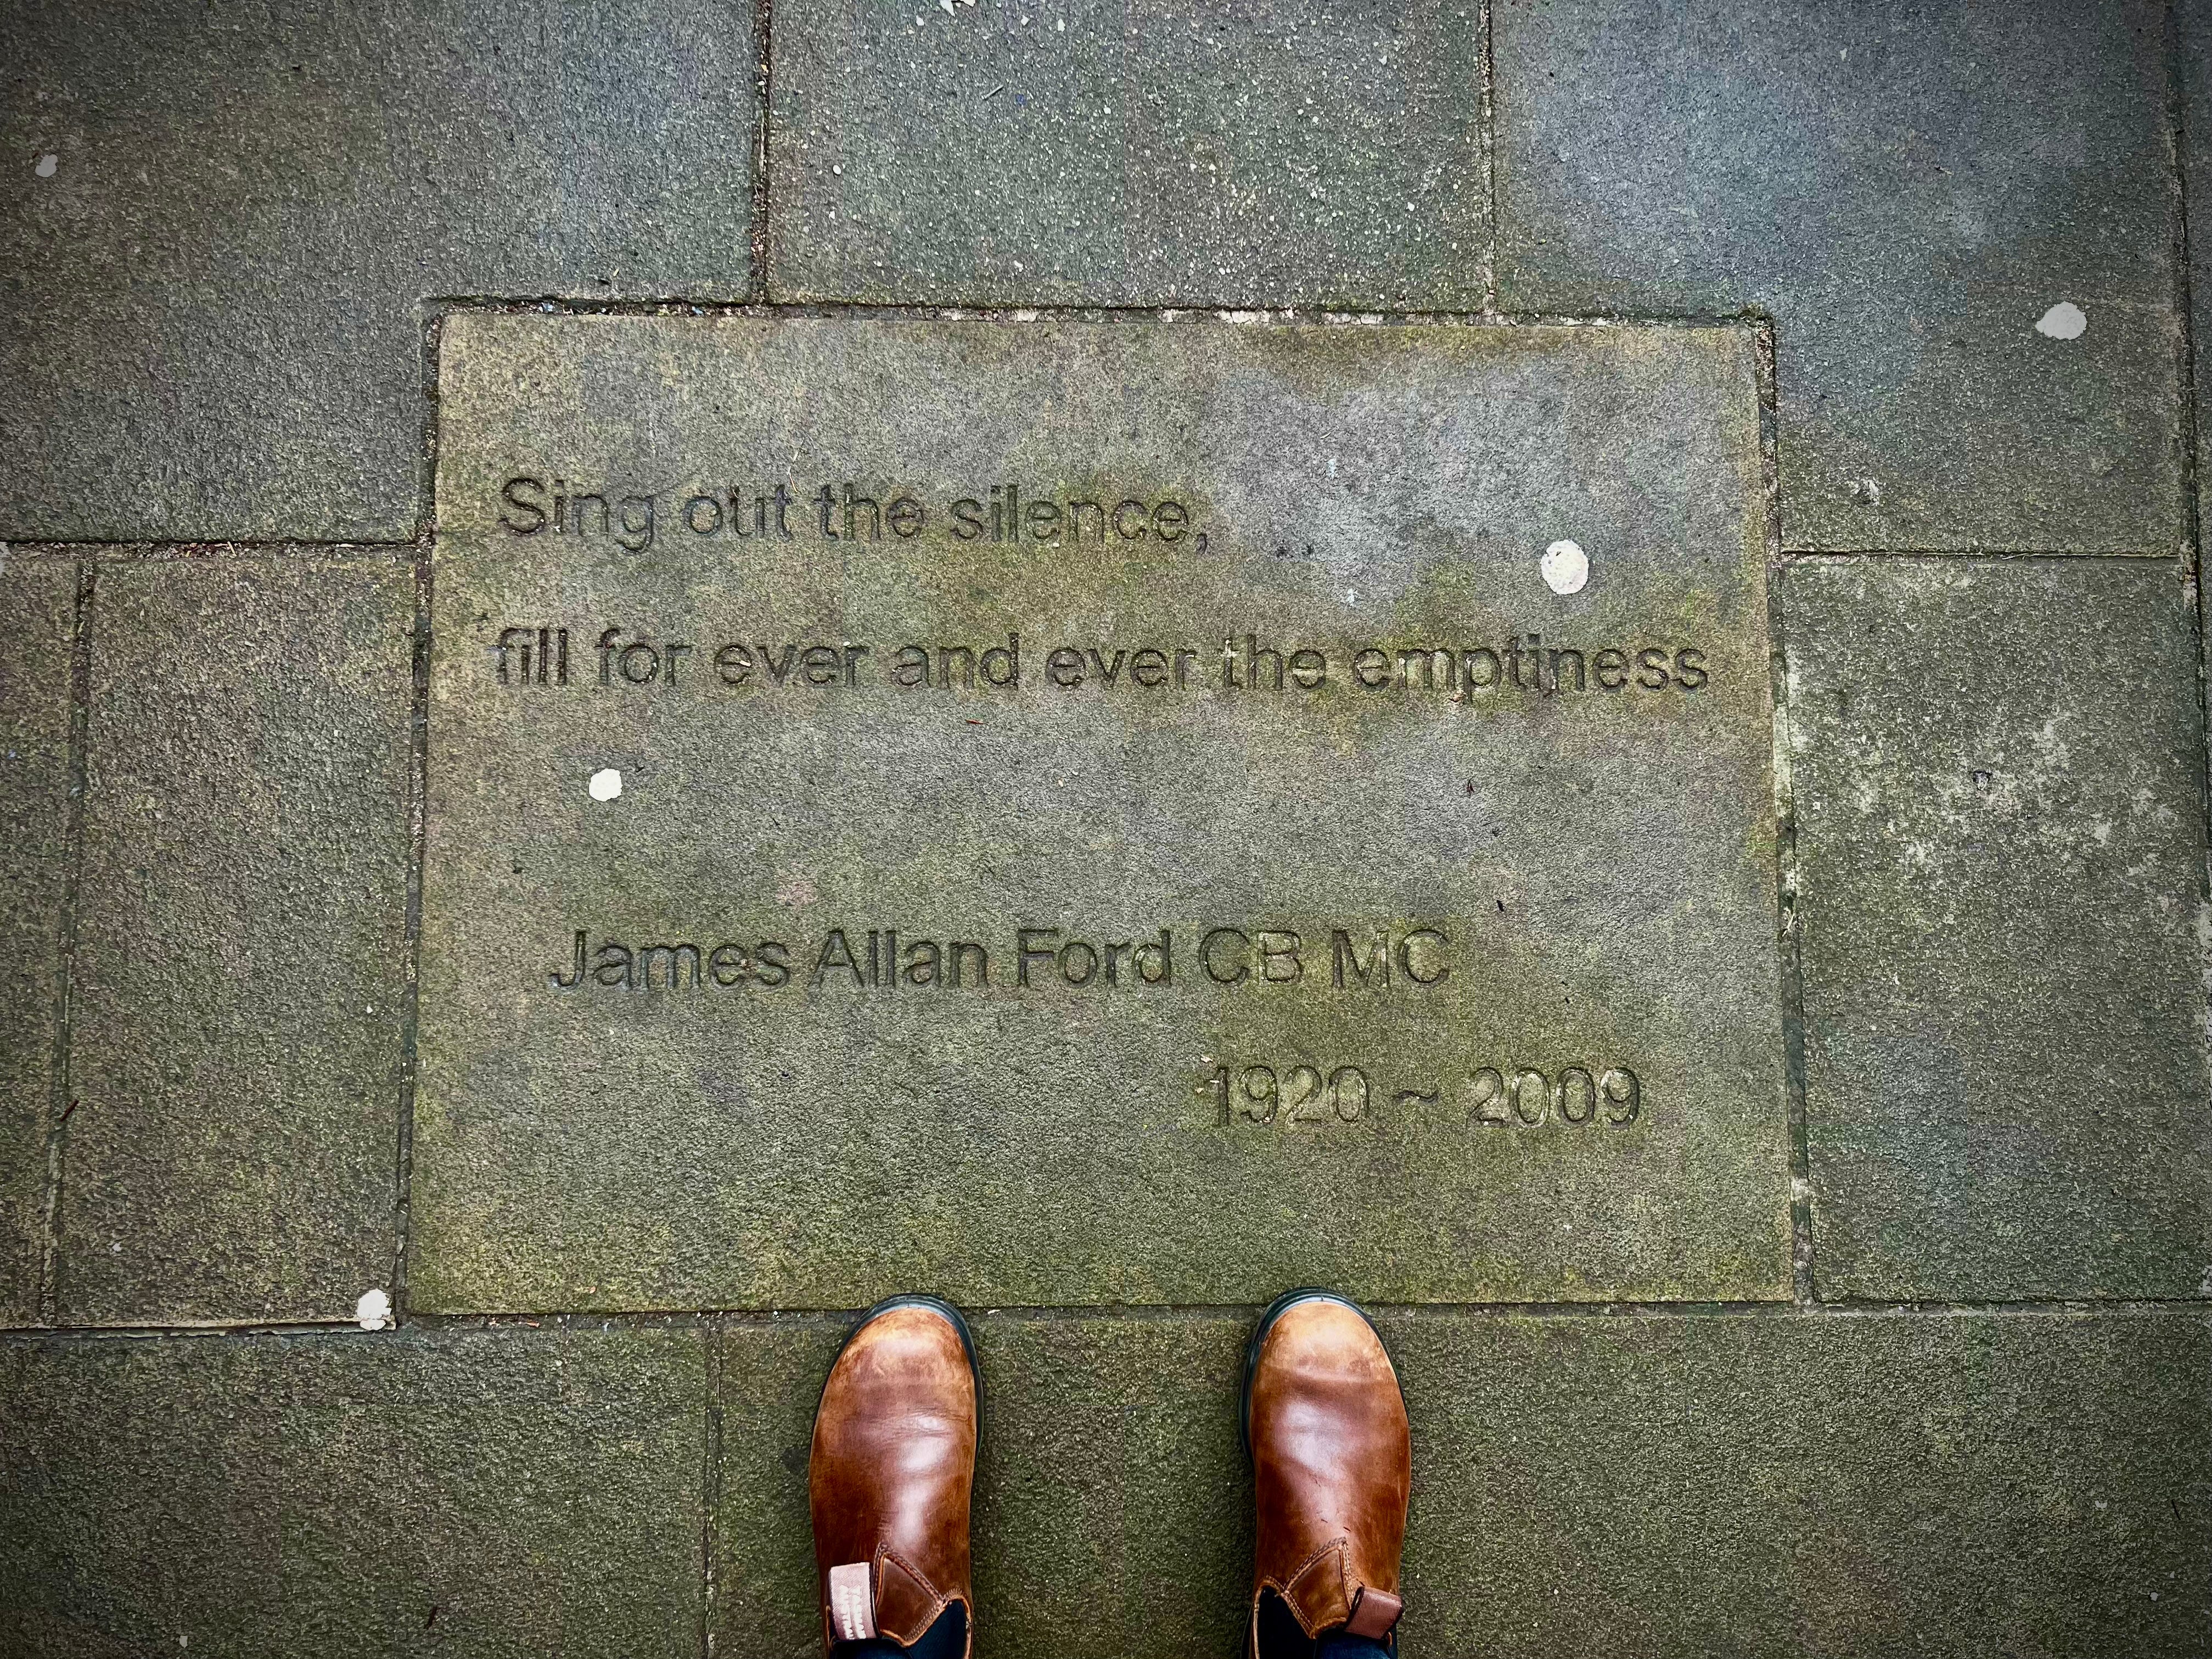 Sing out the silence,
fill for ever and ever the emptiness
James Allan Ford CB MC
1920 ~ 2009